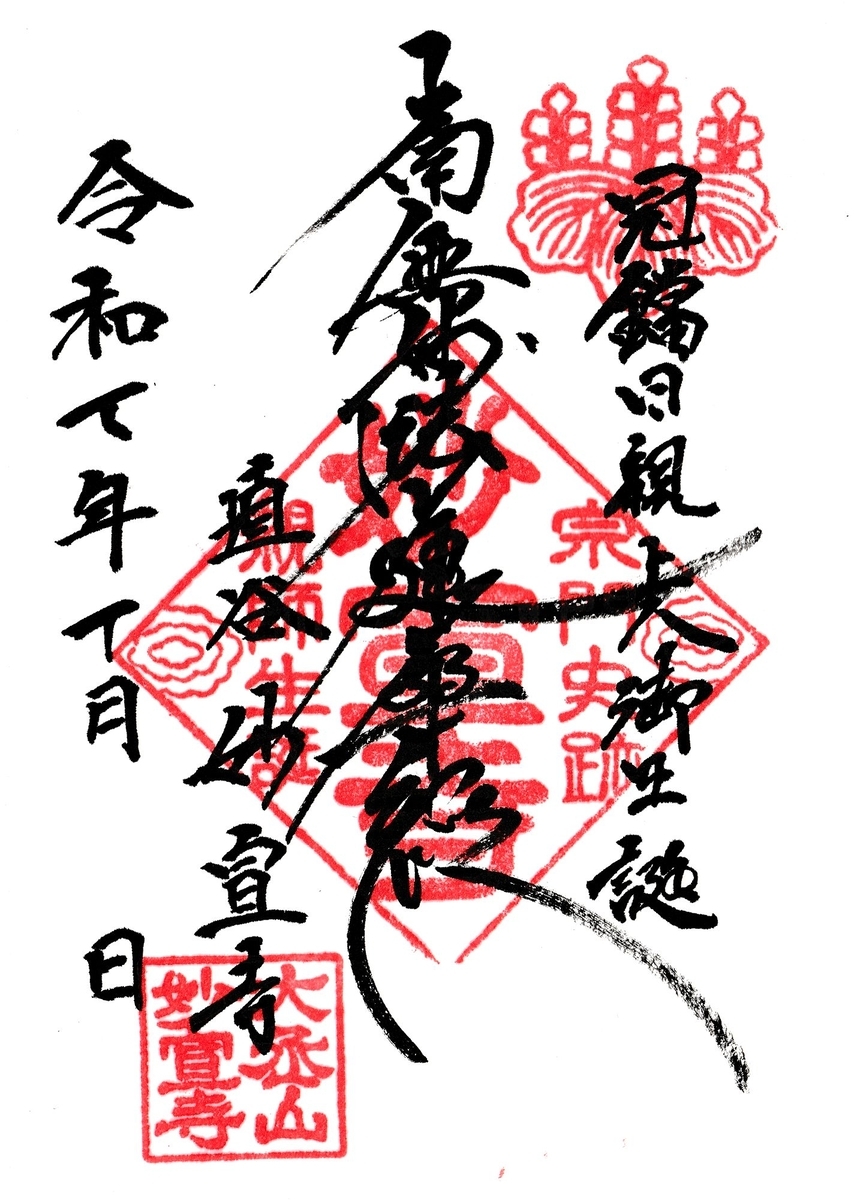 冠鐺日親上人御生誕
南無妙法蓮華経
埴谷 妙宣寺
令和七年 月 日
宗門史跡
妙宣寺
親師生誕
大丞山
妙宣寺